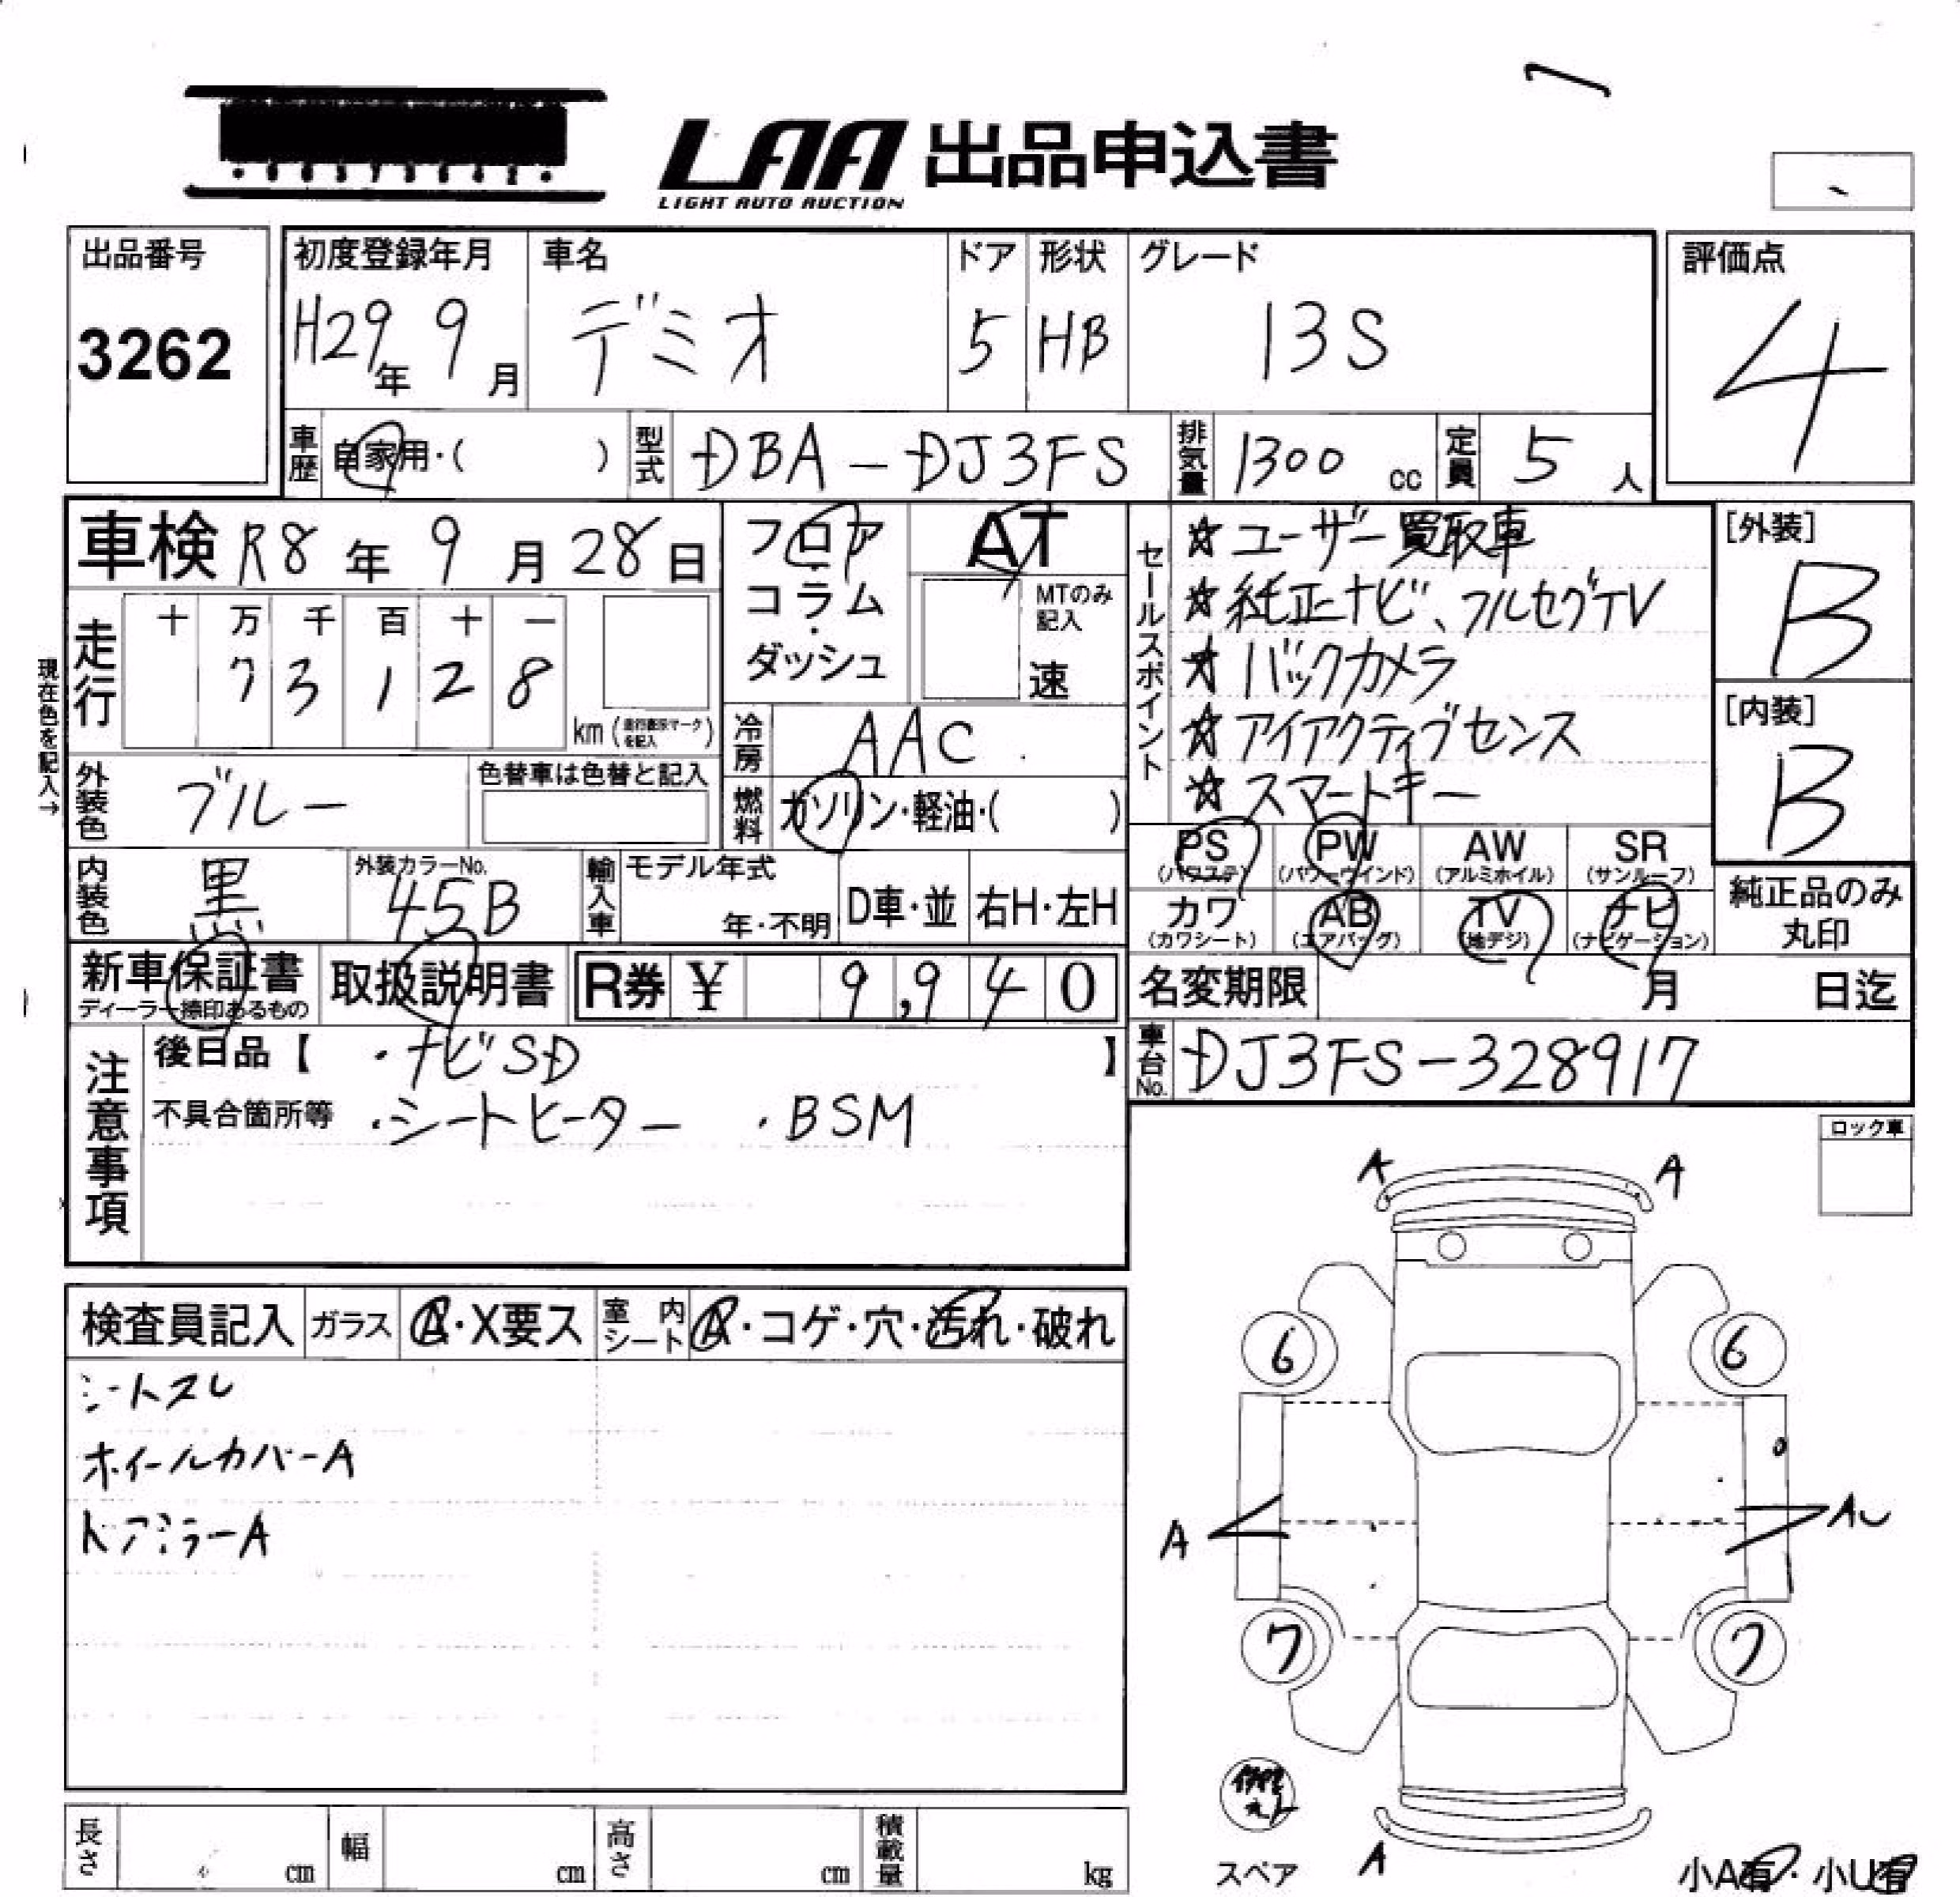 LAA 出品申込書
LIGHT AUTO AUCTION
出品番号
3262
初度登録年月
H29年 9月
車名
デミオ
ドア
5
形状
HB
グレード
13S
評価点
4
車歴 自家用・( )
型式 DBA-DJ3FS
排気量 1300 cc
定員 5 人
車検 R8年 9月 28日
フロア・コラム・ダッシュ
AT
MTのみ記入
速
走行
十 万 千 百 十 一
7 3 1 2 8
km
現在色を記入→
冷房 AAC
燃料 ガソリン・軽油・( )
外装色 ブルー
色替車は色替と記入
内装色 黒
外装カラーNo.
45B
輸入車 モデル年式
年・不明
D車・並
右H・左H
セールスポイント
☆ユーザー買取車
☆純正ナビ、フルセグTV
☆バックカメラ
☆アイアクティブセンス
☆スマートキー
[外装]
B
[内装]
B
PS (パワステ) PW (パワーウインド) AW (アルミホイル) SR (サンルーフ)
カワ (カワシート) AB (エアバッグ) TV (地デジ) ナビ (ナビゲーション)
純正品のみ丸印
新車保証書
ディーラー捺印あるもの
取扱説明書
R券 ¥ 9,940
名変期限 月 日迄
車台No. DJ3FS-328917
注意事項
後日品【 ・ナビSD 】
不具合箇所等 ・シートヒーター ・BSM
ロック車
検査員記入 ガラス A・X要ス 室内シート A・コゲ・穴・汚れ・破れ
シートスレ
ホイールカバーA
ドアミラーA
A A
6 6
A AU
7 7
A
スペア
小A有・小U有
長さ cm 幅 cm 高さ cm 積載量 kg